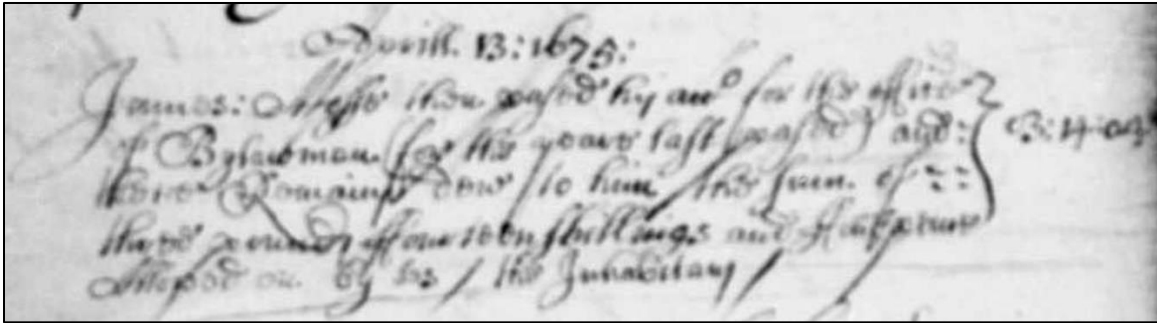 Aprill. 13: 1675:
James: then passed his acco for the office
of Bylawman (for the yeare last passed) and:
there Remaines dew to him the sum. of ==
three pounds ffourteen shillings and
by us / the Inhabitants /